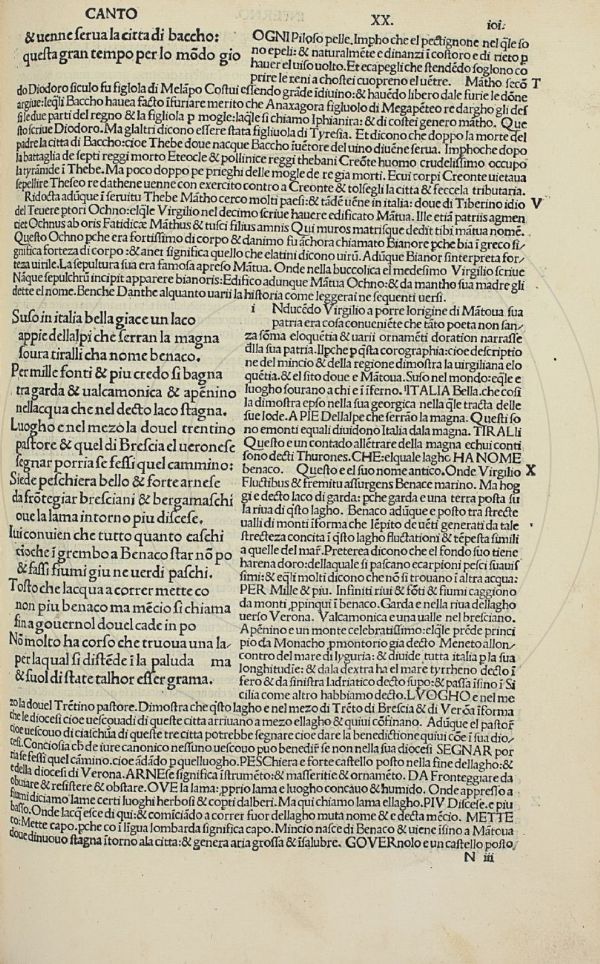 CANTO XX. ioi.
& uenne serua la citta di baccho:
questa gran tempo per lo mõdo gio
OGNI Piloso pelle. Impho che el pectignone nel q̃le so
no epeli: & naturalmẽte e dinanzi ĩ costoro e di rieto p
hauer el uiso uolto. Et ecapegli che stendẽdo soglono co
prire le reni a chostei cuopreno el uẽtre. Matho secõ T
do Diodoro siculo fu figlola di Melãpo Costui essendo grãde ĩdiuino: & hauẽdo libero dale furie le dõne
argiue: leq̃li Baccho hauea facto ĩfuriare merito che Anaxagora figluolo di Megapẽteo re dargho gli des
si le due parti del regno & la figliola p mogle: laq̃le si chiamo Iphianira: & di costei genero mãtho. Que
sto scriue Diodoro. Ma glaltri dicono essere stata figliuola di Tyresia. Et dicono che doppo la morte del
padre la citta di Baccho: cioe Thebe doue nacque Bacho ĩuẽtore del uino diuẽne serua. Imphoche dopo
la battaglia de septi reggi morto Eteocle & pollinice reggi thebani Creõte huomo crudelissimo occupo
la tyrãnide ĩ Thebe. Ma poco doppo pe prieghi delle mogle de re gia morti. Ecui corpi Creonte uietaua
sepellire Theseo re dathene uenne con exercito contro a Creonte & tolsegli la citta & feccela tributaria.
Ridocta adũque ĩ seruitu Thebe Matho cerco molti paesi: & tãdẽ uẽne in italia: doue di Tiberino idio V
del Teuere ptori Ochno: elq̃le Virgilio nel decimo scriue hauere edificato Mãtua. Ille etiã patriis agmen
ciet Ochnus ab oris Fatidicæ Mãthus & tusci filius amnis Qui muros matrisque dedit tibi mãtua nomẽ.
Questo Ochno pche era fortissimo di corpo & danimo fu ãchora chiamato Bianore pche bia ĩ greco si
gnifica forteza di corpo: & aner significa quello che elatini dicono uirũ. Adũque Bianor sinterpreta for
teza uirile. La sepultura sua era famosa apreso Mãtua. Onde nella buccolica el medesimo Virgilio scriue
Nãque sepulchrũ incipit apparere bianoris: Edifico adunque Mãtua Ochno: & da mantho sua madre gli
dette el nome. Benche Danthe alquanto uarii la historia come leggerai ne sequenti uersi.
Suso in italia bella giace un laco
appie dellalpi che serran la magna
soura tiralli cha nome benaco.
Per mille fonti & piu credo si bagna
tra garda & ualcamonica & apẽnino
nellacqua che nel decto laco stagna.
Luogho e nel mezo la douel trentino
pastore & quel di Brescia el ueronese
segnar porria se fessi quel cammino:
Siede peschiera bello & forte arnese
da frõtegiar bresciani & bergamaschi
oue la lama intorno piu discese.
Iui conuien che tutto quanto caschi
cioche ĩ grembo a Benaco star nõ po
& fassi fiumi giu ne uerdi paschi.
Tosto che lacqua a correr mette co
non piu benaco ma mẽcio si chiama
fin a gouernol doue cade in po
Nõ molto ha corso che truoua una la⸗
per laqual si distẽde ĩ la paluda ma
& suol di state talhor esser grama.
i Nducẽdo Virgilio a porre lorigine di Mãtoua sua
patria era cosa conueniẽte che tãto poeta non san⸗
za sõma eloquẽtia & uarii ornamẽti doration narrasse
dlla sua patria. Ilpche p q̃sta corographia: cioe descriptio
ne del mincio & della regione dimostra la uirgiliana elo
quẽtia. & el sito doue e Mãtoua. Suso nel mondo: eq̃le e
luogho sourano a chi e ĩ iferno. ITALIA Bella. che cosi
la dimostra epso nella sua georgica nella q̃le tracta delle
sue lode. A PIE Dellalpe che serrão la magna. Questi so
no emonti equali diuidono Italia dala magna. TIRALI
Questo e un contado allẽtrare della magna echui conti
sono decti Thurones. CHE: elquale lagho HA NOME
benaco. Questo e el suo nome antico. Onde Virgilio X
Fluctibus & fremitu assurgens Benace marino. Ma hog
gi e decto laco di garda: pche garda e una terra posta su
la riua di q̃sto lagho. Benaco adũque e posto tra strecte
ualli di monti ĩforma che lẽpito de uẽti generati da tale
strecteza concita ĩ q̃sto lagho fluctationi & tẽpesta simili
a quelle del marr. Preterea dicono che el fondo suo tiene
harena doro: dellaquale si pascano ecarpioni pesci suauis
simi: & eq̃li molti dicono che nõ si trouano ĩ altra acqua:
PER Mille & piu. Infiniti riui & fõti & fiumi caggiono
da monti, ppinqui ĩ benaco. Garda e nella riua dellagho
uerso Verona. Valcamonica e una ualle nel bresciano.
Apẽnino e un monte celebratissimo: elq̃le prẽde princi
pio da Monacho, pmontorio gia decto Meneto allon⸗
contro del mare di lyguria: & diuide tutta italia p la sua
longhitudie: & dala dextra ha el mare tyrrheno decto ĩ
fero & da sinistra ladriatico decto supo: & passa ĩsino ĩ Si
cilia come altro habbiamo decto. LVOGHO e nel me
zo la douel Trẽtino pastore. Dimostra che q̃sto lagho e nel mezo di Trẽto di Brescia & di Verõa ĩforma
che le diocesi cioe uescouadi di queste citta arriuano a mezo ellagho & quiui cõfinano. Adũque el pastor
cioe uescouo di ciaschũa di queste tre citta potrebbe segnare cioe dare la benedictione quiui cõe ĩ sua dio⸗
cesi. Conciosia ch de iure canonico nessuno uescouo puo benedir se non nella sua diocesi SEGNAR por
ria se fessi quel cãmino. cioe ãdãdo p quelluogho. PESChiera e forte castello posto nella fine dellagho: &
della diocesi di Verona. ARNESe significa ĩstrumẽto: & masseritie & ornamẽto. DA Fronteggiare da
obuiare & resistere & obstare. OVE la lama: pprio lama e luogho concauo & humido. Onde appresso a
fiumi diciamo lame certi luoghi herbosi & copti dalberi. Ma qui chiamo lama ellagho. PIV Discese. e piu
basso. Onde lacq̃ esce di qui: & comiciãdo a correr fuor dellagho muta nome & e decta mẽcio. METTE
co: Mette capo. pche co ĩ ligua lombarda significa capo. Mincio nasce di Benaco & uiene ĩsino a Mãtoua
doue dinuouo stagna ĩtorno ala citta: & genera aria grossa & ĩsalubre. GOVERnolo e un castello posto
N iii